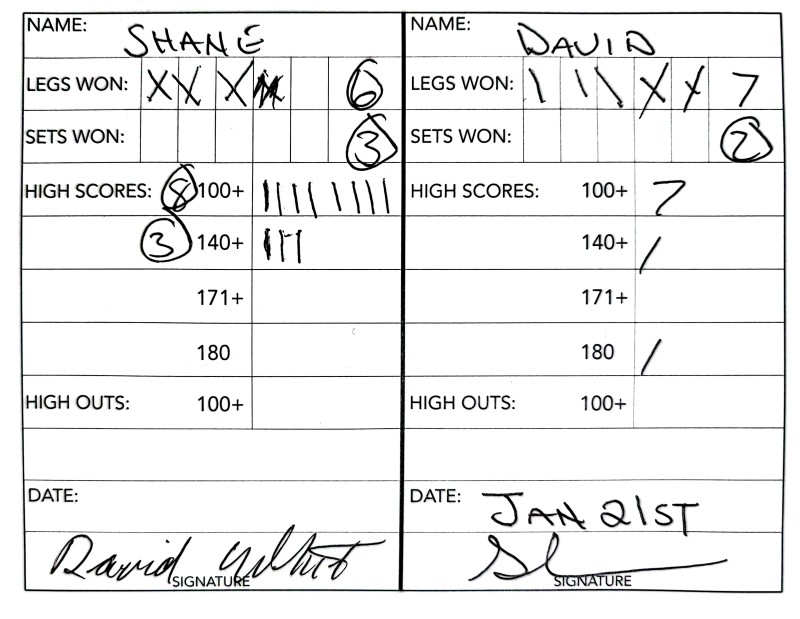 NAME: SHANE
LEGS WON: X X X 6
SETS WON: 3
HIGH SCORES: 8 100+ |||| ||||
3 140+ |||
171+
180
HIGH OUTS: 100+
DATE:
David
SIGNATURE
NAME: DAVID
LEGS WON: \ | | \ X X 7
SETS WON: 2
HIGH SCORES: 100+ 7
140+ /
171+
180 /
HIGH OUTS: 100+
DATE: JAN 21ST
SIGNATURE